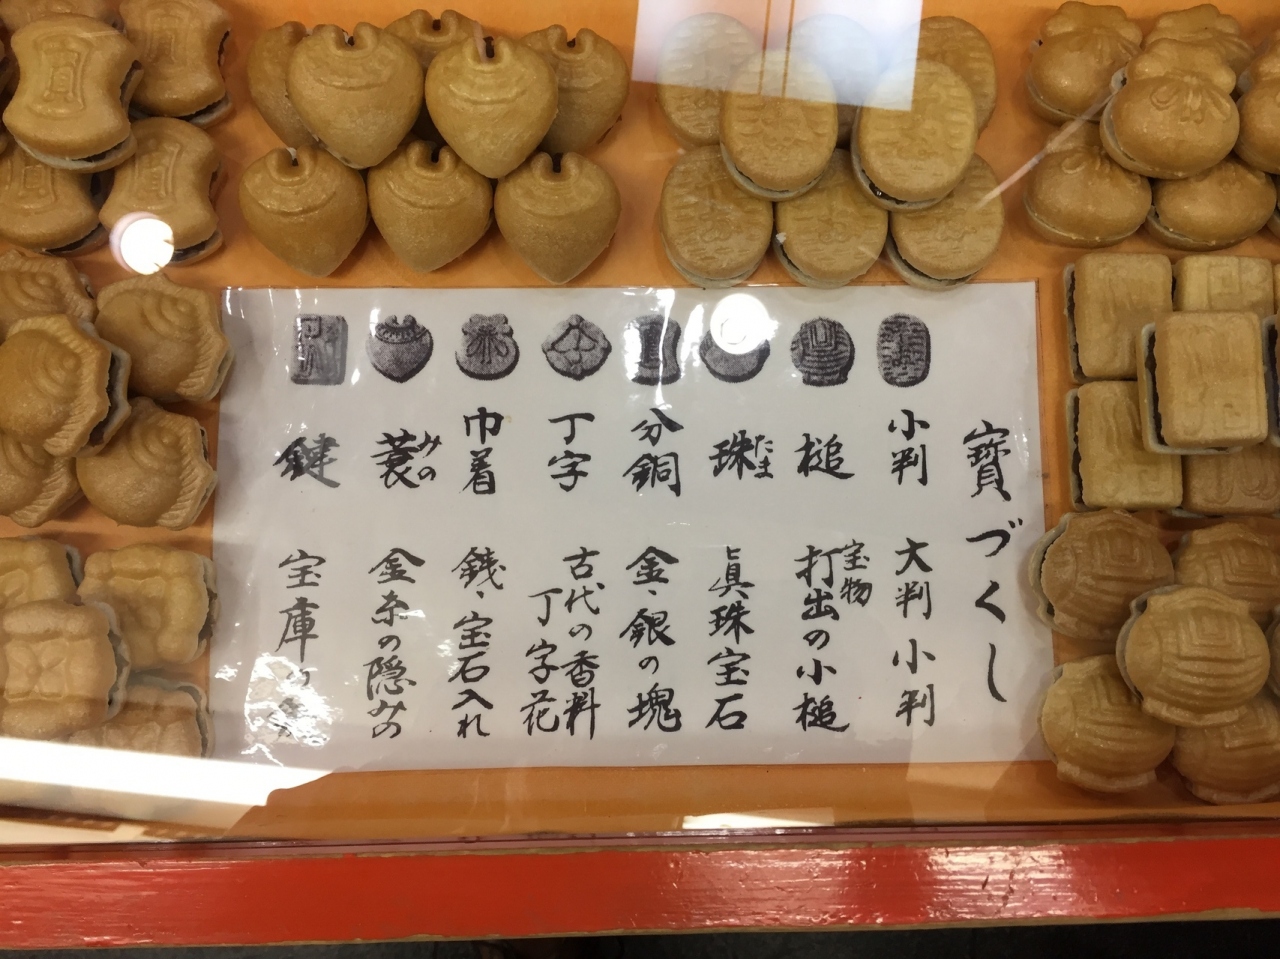 寶づくし
小判 大判 小判
槌 宝物 打出の小槌
珠 たま 眞珠 宝石
分銅 金、銀の塊
丁字 古代の香料 丁字花
巾着 銭、宝石入れ
蓑 みの 金糸の隠みの
鍵 宝庫の